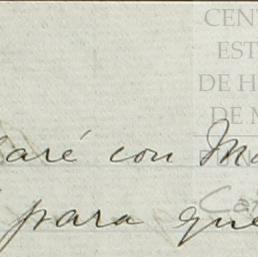 CEN
EST
DE H
DE M
aré con M
para que
Ca